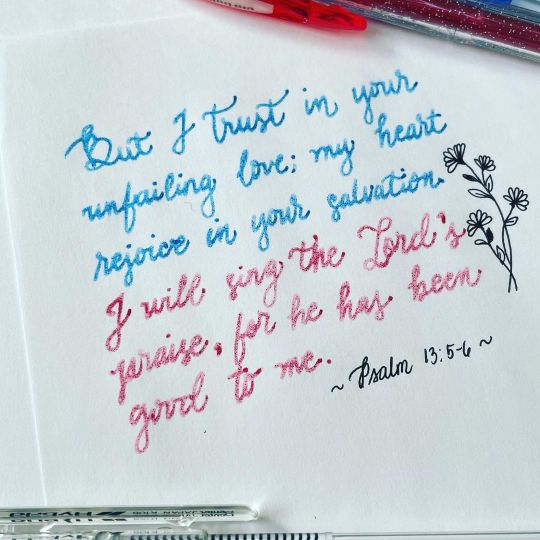 But I trust in your
unfailing love; my heart
rejoice in your salvation.
I will sing the Lord's
praise, for he has been
good to me.
~ Psalm 13:5-6 ~